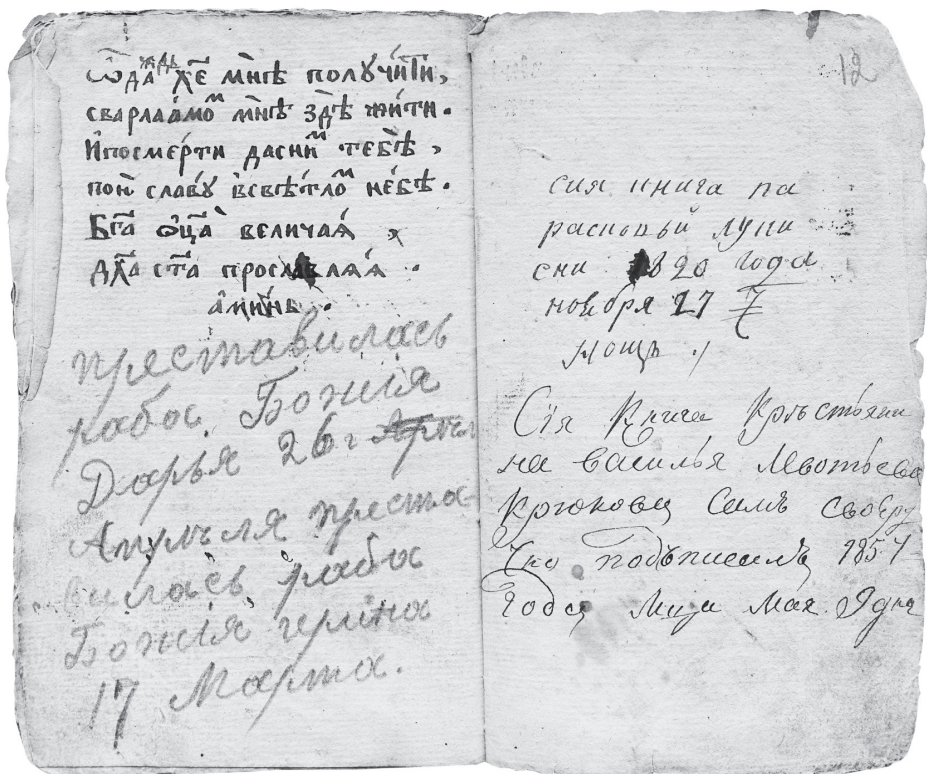 ѿда́ждь хе҃ мнѣ̀ получи́ти,
сварлаа́момъ мнѣ̀ здѣ̀ жи́ти.
и҆посме́рти дасни́мъ тебѣ̀,
пою̀ славу̀ всвѣ́тломъ не́бѣ.
бг҃а ѻц҃а̀ велича́ѧ,
дх҃а ст҃а просла́влѧѧ.
а҆ми́нь.
преставилась
раба Божія
Дарья 26 г Апрел
Апрѣля преста-
вилась раба
Божія
17 Марта.
12
сия книга па
расковьи лупи
сни 1820 года
ноября 27
Сія Книга Кръстьяни
на василья
Крюкова Самъ своеру
чно подъписалъ 1857
Года Мца Мая 9 дня